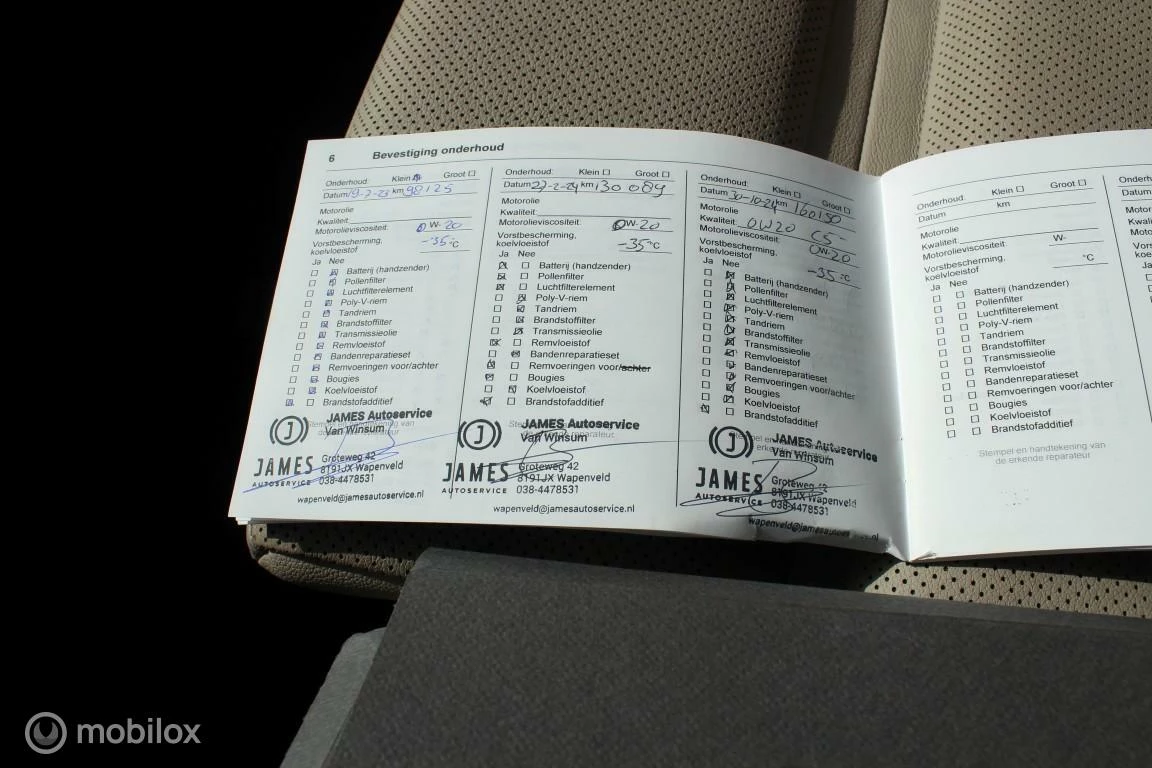 6 Bevestiging onderhoud
Onderhoud: Klein Groot
Datum 19-7-23 km 98125
Motorolie
Kwaliteit:
Motorolieviscositeit: 0W-20
Vorstbescherming, koelvloeistof -35 °C
Ja Nee
Batterij (handzender)
Pollenfilter
Luchtfilterelement
Poly-V-riem
Tandriem
Brandstoffilter
Transmissieolie
Remvloeistof
Bandenreparatieset
Remvoeringen voor/achter
Bougies
Koelvloeistof
Brandstofadditief
Stempel en handtekening van
de erkende reparateur
JAMES Autoservice
Van Winsum
JAMES
AUTOSERVICE
Groteweg 42
8191JX Wapenveld
038-4478531
wapenveld@jamesautoservice.nl
Onderhoud: Klein Groot
Datum 27-2-24 km 130 089
Motorolie
Kwaliteit:
Motorolieviscositeit: 0W-20
Vorstbescherming, koelvloeistof -35 °C
Ja Nee
Batterij (handzender)
Pollenfilter
Luchtfilterelement
Poly-V-riem
Tandriem
Brandstoffilter
Transmissieolie
Remvloeistof
Bandenreparatieset
Remvoeringen voor/achter
Bougies
Koelvloeistof
Brandstofadditief
JAMES Autoservice
Van Winsum
JAMES
AUTOSERVICE
Groteweg 42
8191JX Wapenveld
038-4478531
wapenveld@jamesautoservice.nl
Onderhoud: Klein Groot
Datum 30-10-24 km 160130
Motorolie
Kwaliteit: 0W20 C5-
Motorolieviscositeit: 0W-20
Vorstbescherming, koelvloeistof -35 °C
Ja Nee
Batterij (handzender)
Pollenfilter
Luchtfilterelement
Poly-V-riem
Tandriem
Brandstoffilter
Transmissieolie
Remvloeistof
Bandenreparatieset
Remvoeringen voor/achter
Bougies
Koelvloeistof
Brandstofadditief
JAMES Autoservice
Van Winsum
JAMES
AUTOSERVICE
Groteweg 42
8191JX Wapenveld
038-4478531
wapenveld@jamesautoservice.nl
Onderhoud: Klein Groot
Datum km
Motorolie
Kwaliteit:
Motorolieviscositeit: W-
Vorstbescherming, koelvloeistof °C
Ja Nee
Batterij (handzender)
Pollenfilter
Luchtfilterelement
Poly-V-riem
Tandriem
Brandstoffilter
Transmissieolie
Remvloeistof
Bandenreparatieset
Remvoeringen voor/achter
Bougies
Koelvloeistof
Brandstofadditief
Stempel en handtekening van
de erkende reparateur
mobilox